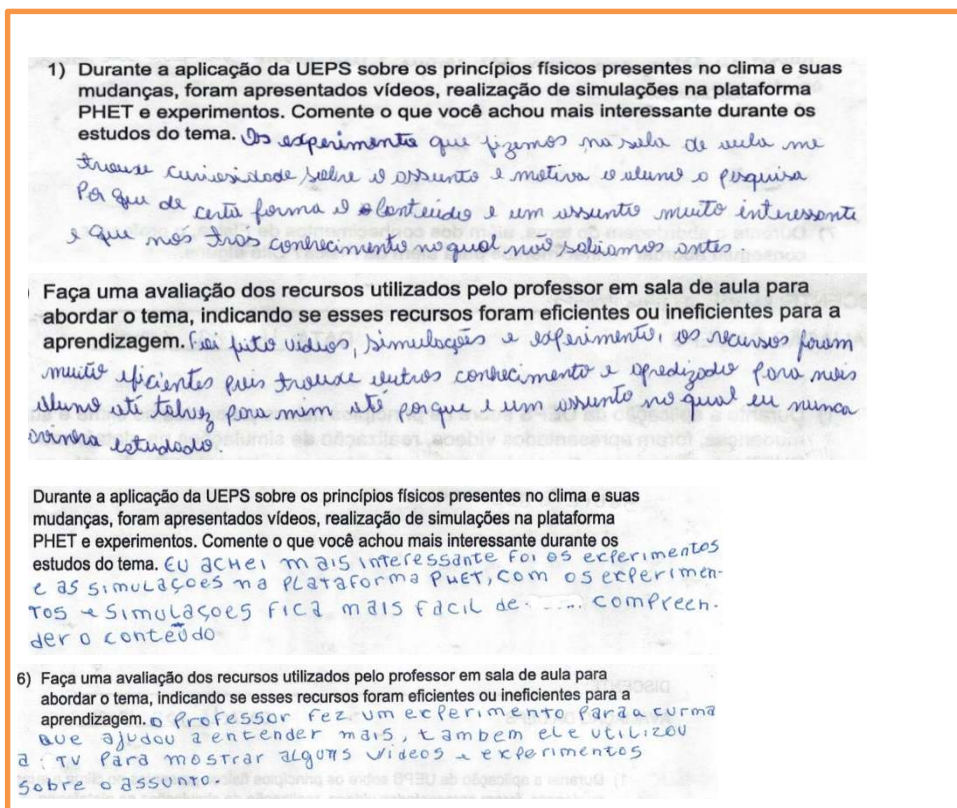 1) Durante a aplicação da UEPS sobre os princípios físicos presentes no clima e suas
mudanças, foram apresentados vídeos, realização de simulações na plataforma
PHET e experimentos. Comente o que você achou mais interessante durante os
estudos do tema. Os experimento que fizemos na sala de aula me
trouxe curiosidade sobre o assunto e motiva o aluno o pesquisa
Por que de certa forma o conteúdo e um assunto muito interessante
e que nos trás conhecimento no qual não sabiamos antes.
Faça uma avaliação dos recursos utilizados pelo professor em sala de aula para
abordar o tema, indicando se esses recursos foram eficientes ou ineficientes para a
aprendizagem. Foi feito videos, simulações e experimento, os recursos foram
muito eficientes pois trouxe outros conhecimento e apredizado para nois
aluno até talvez para mim até porque e um assunto no qual eu nunca
avinha estudado.
Durante a aplicação da UEPS sobre os princípios físicos presentes no clima e suas
mudanças, foram apresentados vídeos, realização de simulações na plataforma
PHET e experimentos. Comente o que você achou mais interessante durante os
estudos do tema. Eu achei mais interessante foi os experimentos
e as simulações na Plataforma PHET, com os experimen-
tos e simulações fica mais facil de compreen-
der o conteúdo
6) Faça uma avaliação dos recursos utilizados pelo professor em sala de aula para
abordar o tema, indicando se esses recursos foram eficientes ou ineficientes para a
aprendizagem. o Professor fez um experimento para a turma
que ajudou a entender mais, tambem ele utilizou
a TV Para mostrar alguns videos e experimentos
sobre o assunto.